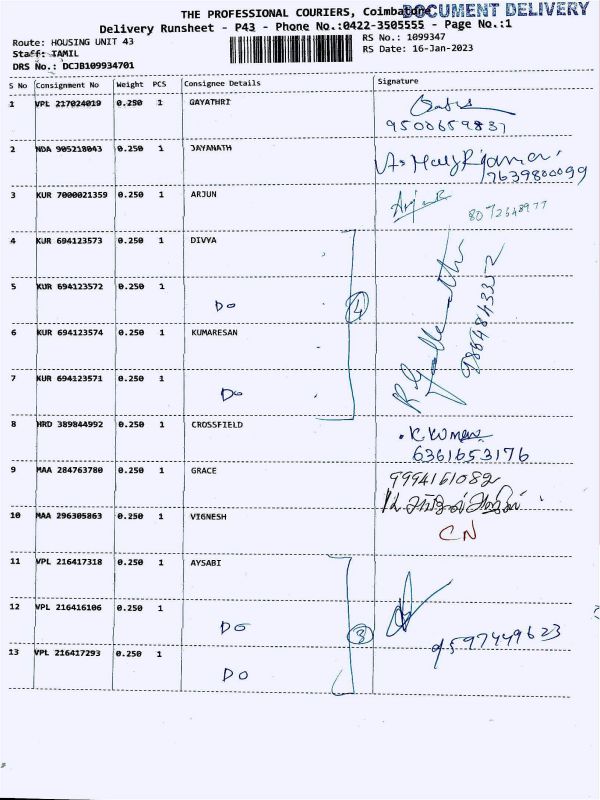 THE PROFESSIONAL COURIERS, Coimbatore
DOCUMENT DELIVERY
Delivery Runsheet - P43 - Phone No.:0422-3505555 - Page No.:1
Route: HOUSING UNIT 43
RS No.: 1099347
Staff: TAMIL
RS Date: 16-Jan-2023
DRS No.: DCJB109934701
S No Consignment No Weight PCS Consignee Details Signature
1 VPL 217024019 0.250 1 GAYATHRI
9500659837
2 NDA 905218043 0.250 1 JAYANATH
7639800099
3 KUR 7000021359 0.250 1 ARJUN
8072648977
4 KUR 694123573 0.250 1 DIVYA
5 KUR 694123572 0.250 1
Do
4
9864843352
6 KUR 694123574 0.250 1 KUMARESAN
7 KUR 694123571 0.250 1
Do
8 HRD 389844992 0.250 1 CROSSFIELD
6361653176
9 MAA 284763780 0.250 1 GRACE
9994161082
10 MAA 296305863 0.250 1 VIGNESH
CN
11 VPL 216417318 0.250 1 AYSABI
12 VPL 216416106 0.250 1
Do
3
9597449623
13 VPL 216417293 0.250 1
DO